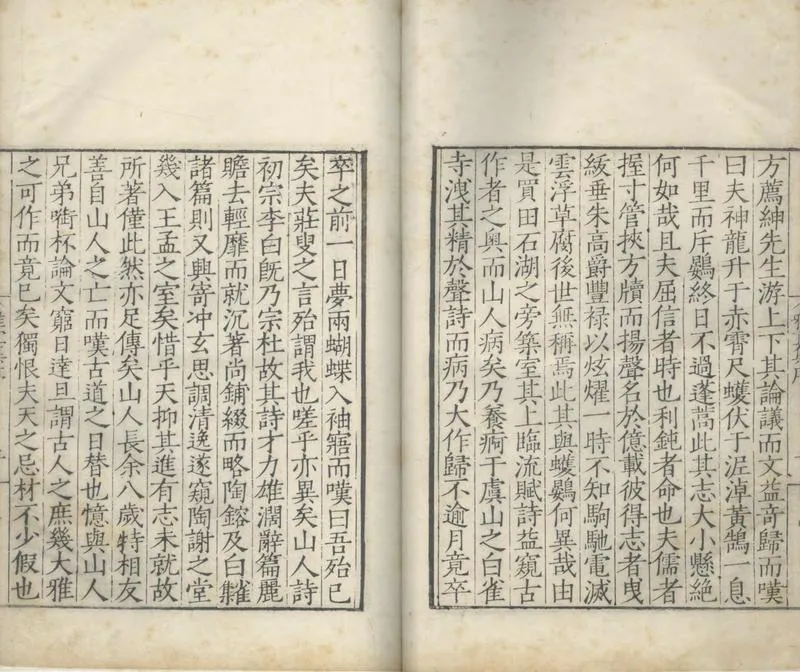 方薦紳先生游上下其論議而文益奇歸而嘆
曰夫神龍升于赤霄尺蠖伏于浞淖黃鵠一息
千里而斥鷃終日不過蓬蒿此其志大小懸絕
何如哉且夫屈信者時也利鈍者命也夫儒者
握寸管挾方牘而揚聲名於億載彼得志者曳
紱垂朱高爵豐祿以炫燿一時不知駒馳電滅
雲浮草腐後世無稱焉此其與蠖鷃何異哉由
是買田石湖之旁築室其上臨流賦詩益窺古
作者之奧而山人病矣乃養痾于虞山之白雀
寺洩其精於聲詩而病乃大作歸不逾月竟卒
卒之前一日夢兩蝴蝶入袖寤而嘆曰吾殆已
矣夫莊叟之言殆謂我也嗟乎亦異矣山人詩
初宗李白旣乃宗杜故其詩才力雄濶辭篇麗
贍去輕靡而就沉著尚鋪綴而略陶鎔及白雀
諸篇則又興寄冲玄思調清逸遂窺陶謝之堂
幾入王孟之室矣惜乎天抑其進有志未就故
所著僅此然亦足傳矣山人長余八歲特相友
善自山人之亡而嘆古道之日替也憶與山人
兄弟嘶杯論文窮日達旦謂古人之庶幾大雅
之可作而竟已矣獨恨夫天之忌材不少假也